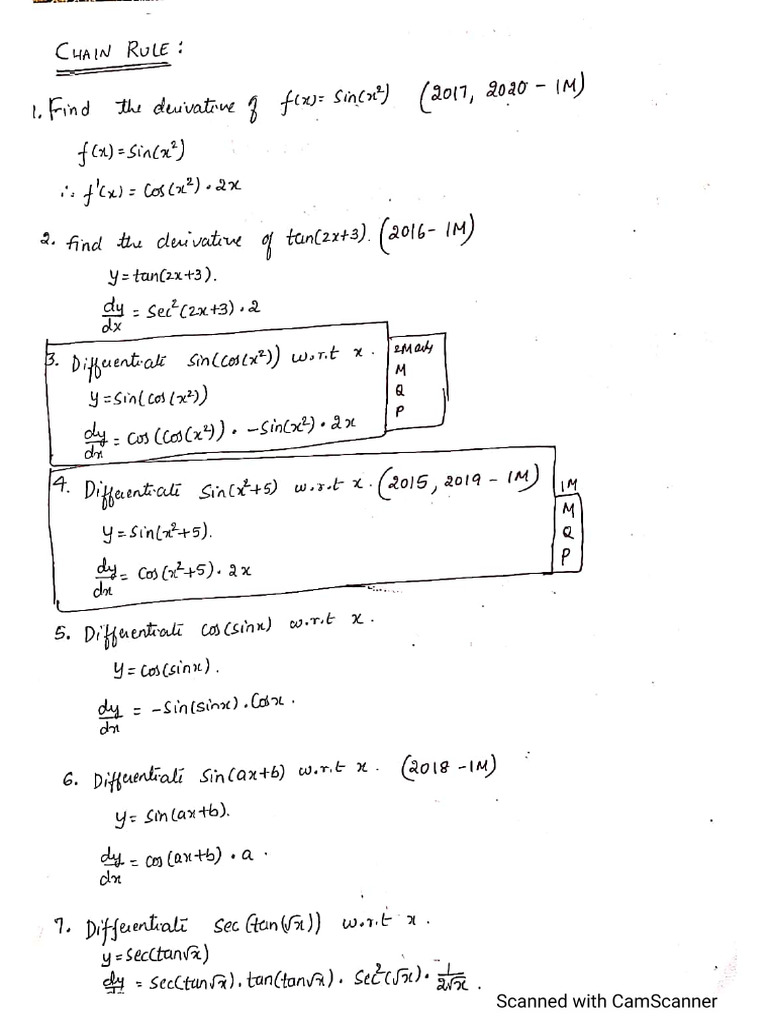 CHAIN RULE :
1. Find the derivative of f(x) = Sin(x²) (2017, 2020 - 1M)
f(x) = Sin(x²)
∴ f'(x) = Cos(x²) . 2x
2. find the derivative of tan(2x+3). (2016 - 1M)
y = tan(2x+3).
dy/dx = Sec²(2x+3) . 2
3. Differentiate Sin(Cos(x²)) w.r.t x.
2Mark
M
Q
P
y = Sin(cos(x²))
dy/dx = Cos(Cos(x²)) . -Sin(x²) . 2x
4. Differentiate Sin(x²+5) w.r.t x. (2015, 2019 - 1M)
1M
M
Q
P
y = Sin(x²+5).
dy/dx = Cos(x²+5) . 2x
5. Differentiate cos(sinx) w.r.t x.
y = Cos(sinx).
dy/dx = -Sin(sinx) . Cosx.
6. Differentiate Sin(ax+b) w.r.t x. (2018 - 1M)
y = Sin(ax+b).
dy/dx = cos(ax+b) . a .
7. Differentiate Sec(tan(√x)) w.r.t x.
y = Sec(tan√x)
dy/dx = Sec(tan√x). tan(tan√x) . Sec²(√x) . 1/2√x .
Scanned with CamScanner